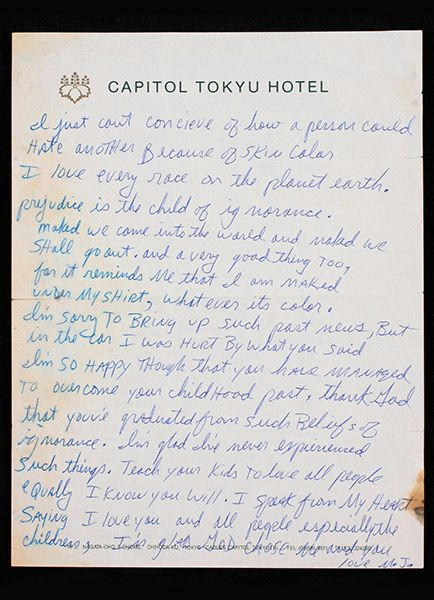 CAPITOL TOKYU HOTEL
I just cant concieve of how a person could
Hate another Because of Skin Color
I love every race on the planet earth.
prejudice is the child of ignorance.
naked we came into the world and naked we
shall go out. and a very good thing too,
for it reminds Me that I am naKed
under My Shirt, whatever its color.
I'm sorry To Bring up Such past news, But
in the car I was HurT By what you said
I'm SO HAPPY THough that you have MANAGED
To overcome your childHood past, thank God
that you've graduated from Such Beliefs of
ignorance. I'm glad I've never experienced
Such things. Teach your Kids To love all people
equally I know you will. I speak from My Heart
Saying I love you and all people especially the
children, I'm glad God chose me and you
love M.J.